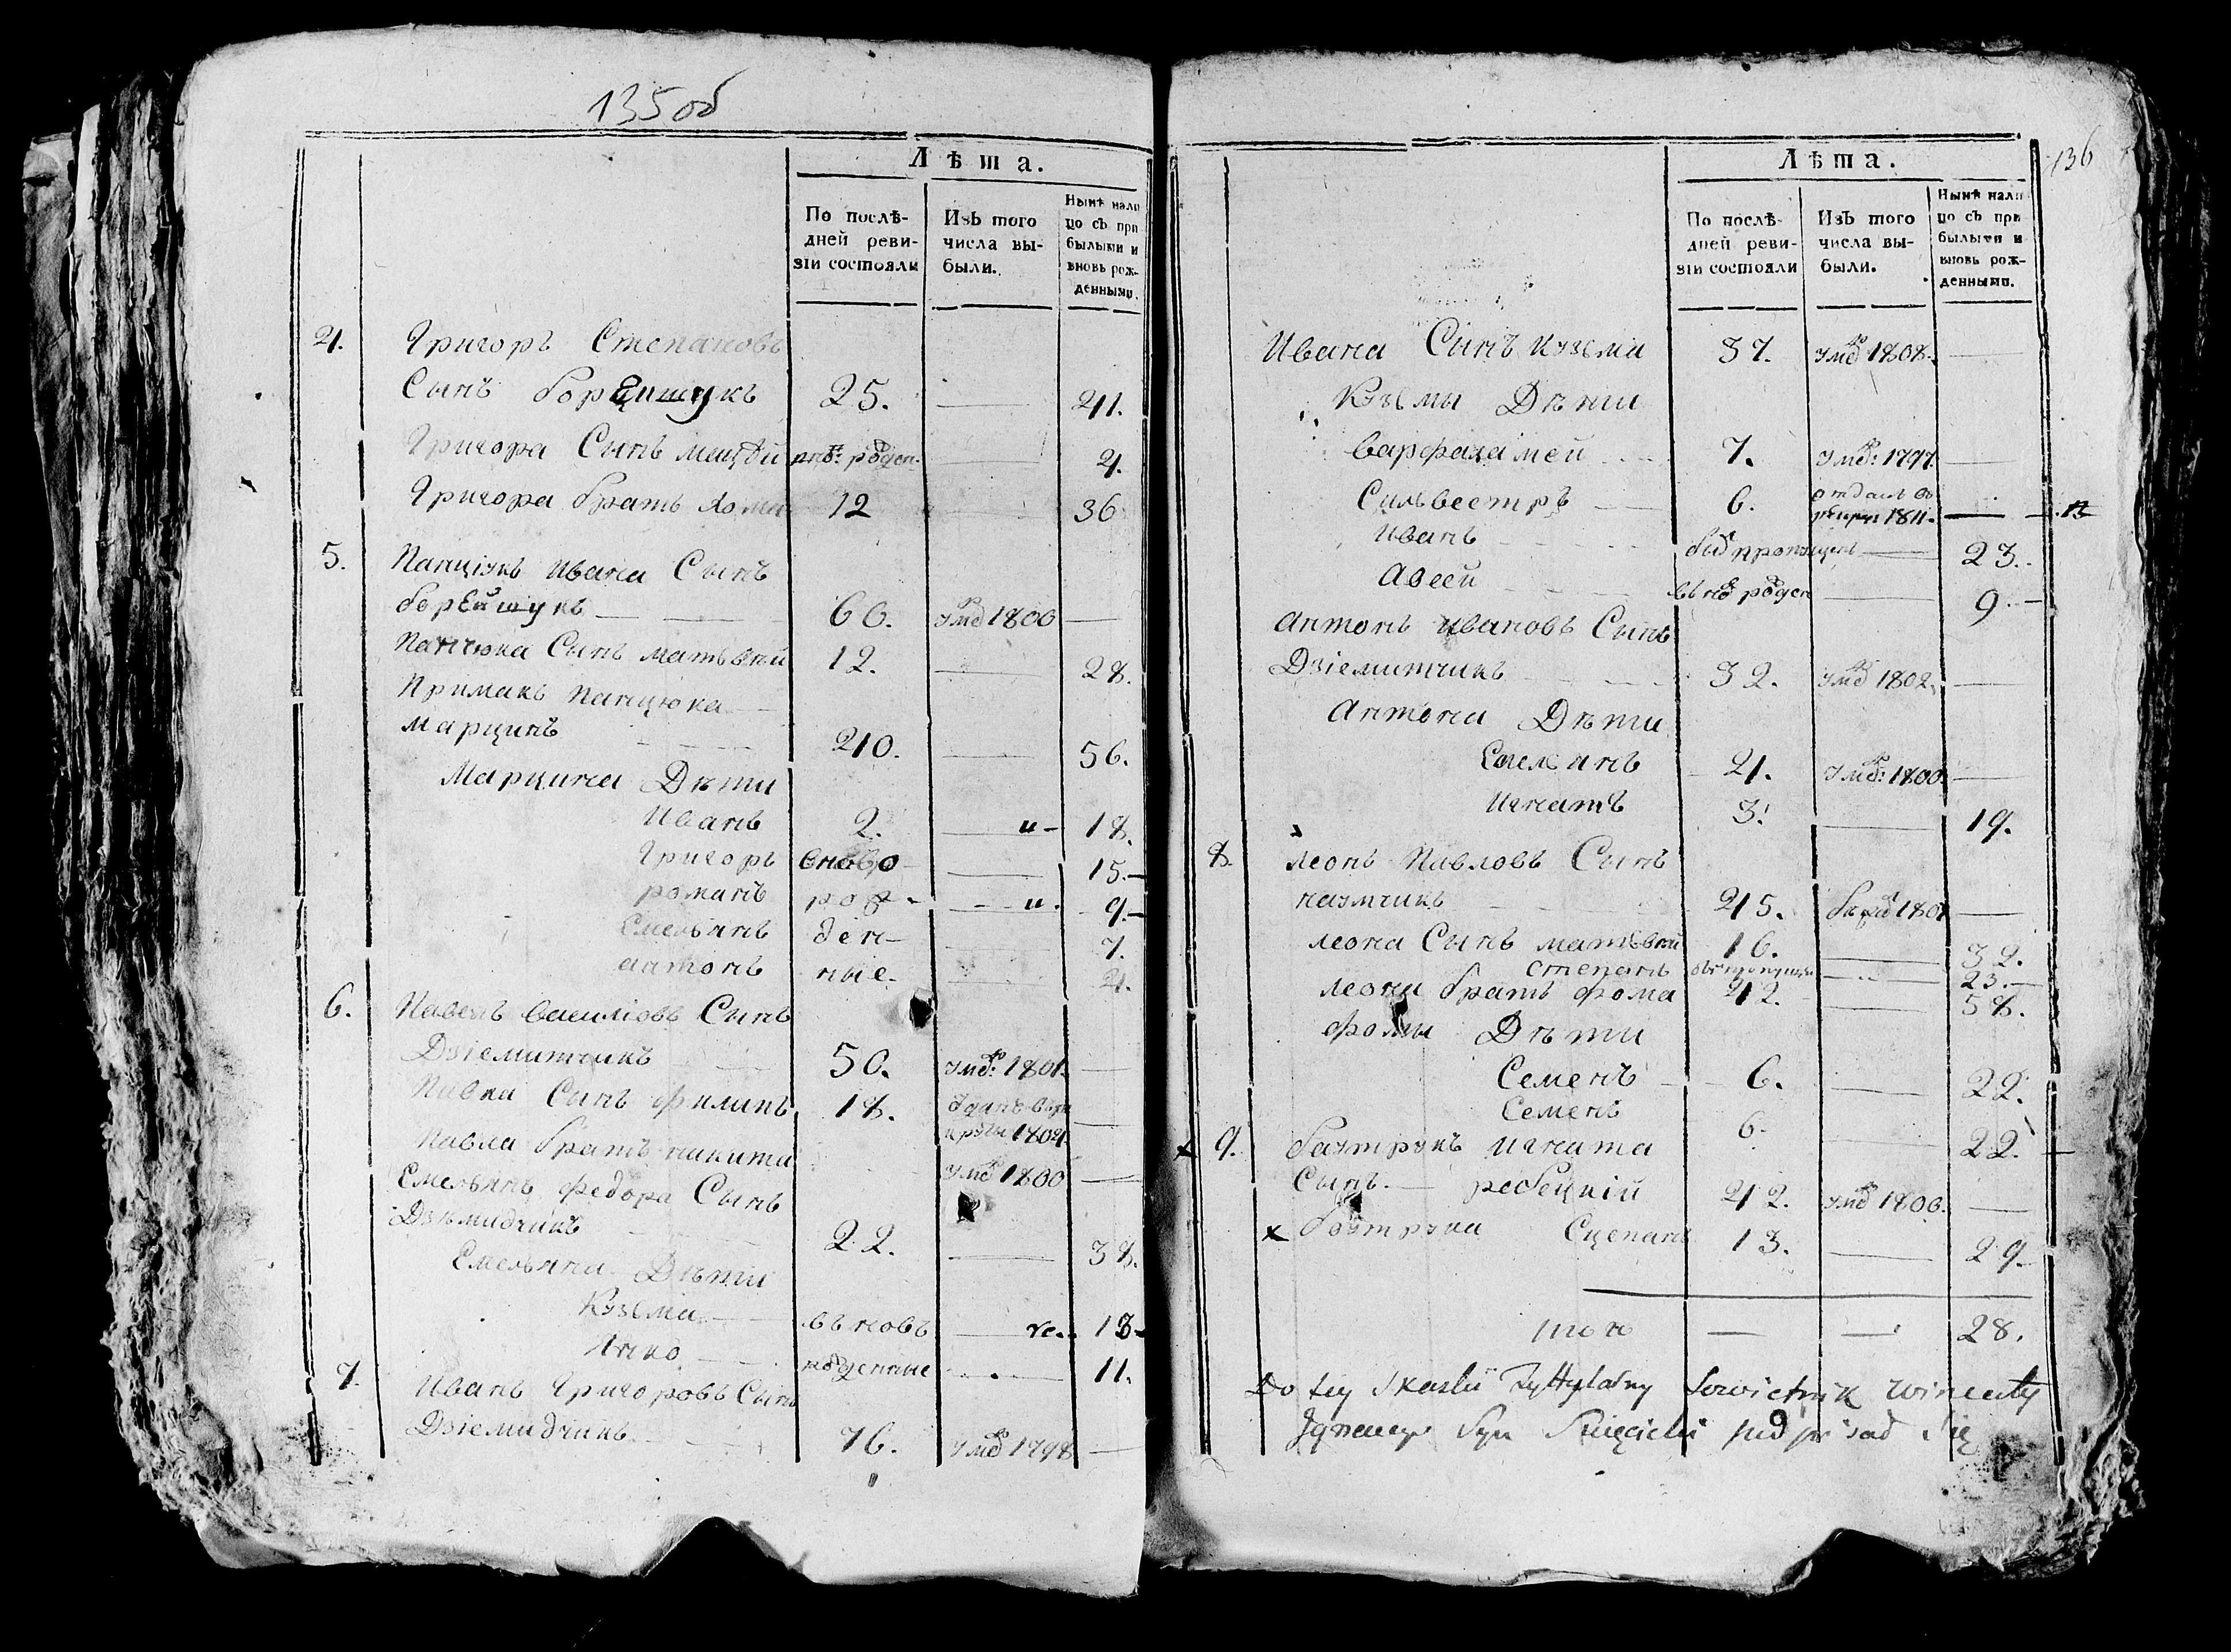 135 об
Лѣта.
По послѣ-
дней реви-
зіи состояли
Изъ того
числа вы-
были.
Нынѣ нали
цо съ при
былыми и
вновь рож-
денными.
4. Григоръ Степановъ
Сынъ борейшукъ 25. — 41.
Григора Сынъ рожден. — 4.
Григора братъ хома 12 36
5. Панцюкъ Ивана Сынъ
борейшукъ — 66. умръ 1800 —
Панцюка Сынъ матьвѣй 12. — 28.
Примакъ панцюка
марцинъ 40. — 56.
Марцина Дѣти
Иванъ 2. — 18.
Григоръ вново — 15.
романъ рож — 9.
Емельянъ ден — 7.
антонъ ные. — 4.
6. Павелъ василіовъ Сынъ
Дзіемитчикъ 50. умр: 1801. —
Павла Сынъ филипъ 18. 1804. —
Павла братъ никита умръ 1800 —
Емельянъ федора Сынъ
Дзѣмидчикъ 22. — 38.
Емельяна Дѣти
Кузьма — въновъ — 13
Янко — рожденные — 11.
7. Иванъ Григоровъ Сынъ
Дзіемидчикъ 76. умръ 1798 —
136
Лѣта.
По послѣ-
дней реви-
зіи состояли
Изъ того
числа вы-
были.
Нынѣ нали
цо съ при
былыми и
вновь рож-
денными.
Ивана Сынъ кузьма 37. умръ 1808. —
Кузьмы Дѣти
варфаламей 7. умр: 1797. —
Сильвестръ — 6. отданъ въ
рекруты 1811. —
Иванъ пропущенъ — 23.
Авсей рожден — 9.
Антонъ ивановъ Сынъ
Дзіемитчикъ 32. умръ 1802. —
Антона Дѣти
Емельянъ 4. умр: 1800. —
Игнатъ 3. — 19.
8. леонъ Павловъ Сынъ
наумчикъ 45. 1807 —
леона Сынъ матьвѣй 16. — 32.
степанъ пропущен — 23.
леона братъ фома 42. — 58.
фомы Дѣти
Семенъ — 6. — 22.
Семенъ 6. 22.
9. баутрукъ игната
Сынъ — ребецкій 42. умръ 1806. —
баутрука Сцепанъ 13. — 29.
— — 28.
Do tey Skaski Tyttylarny Sowietnik Wincenty
Syn